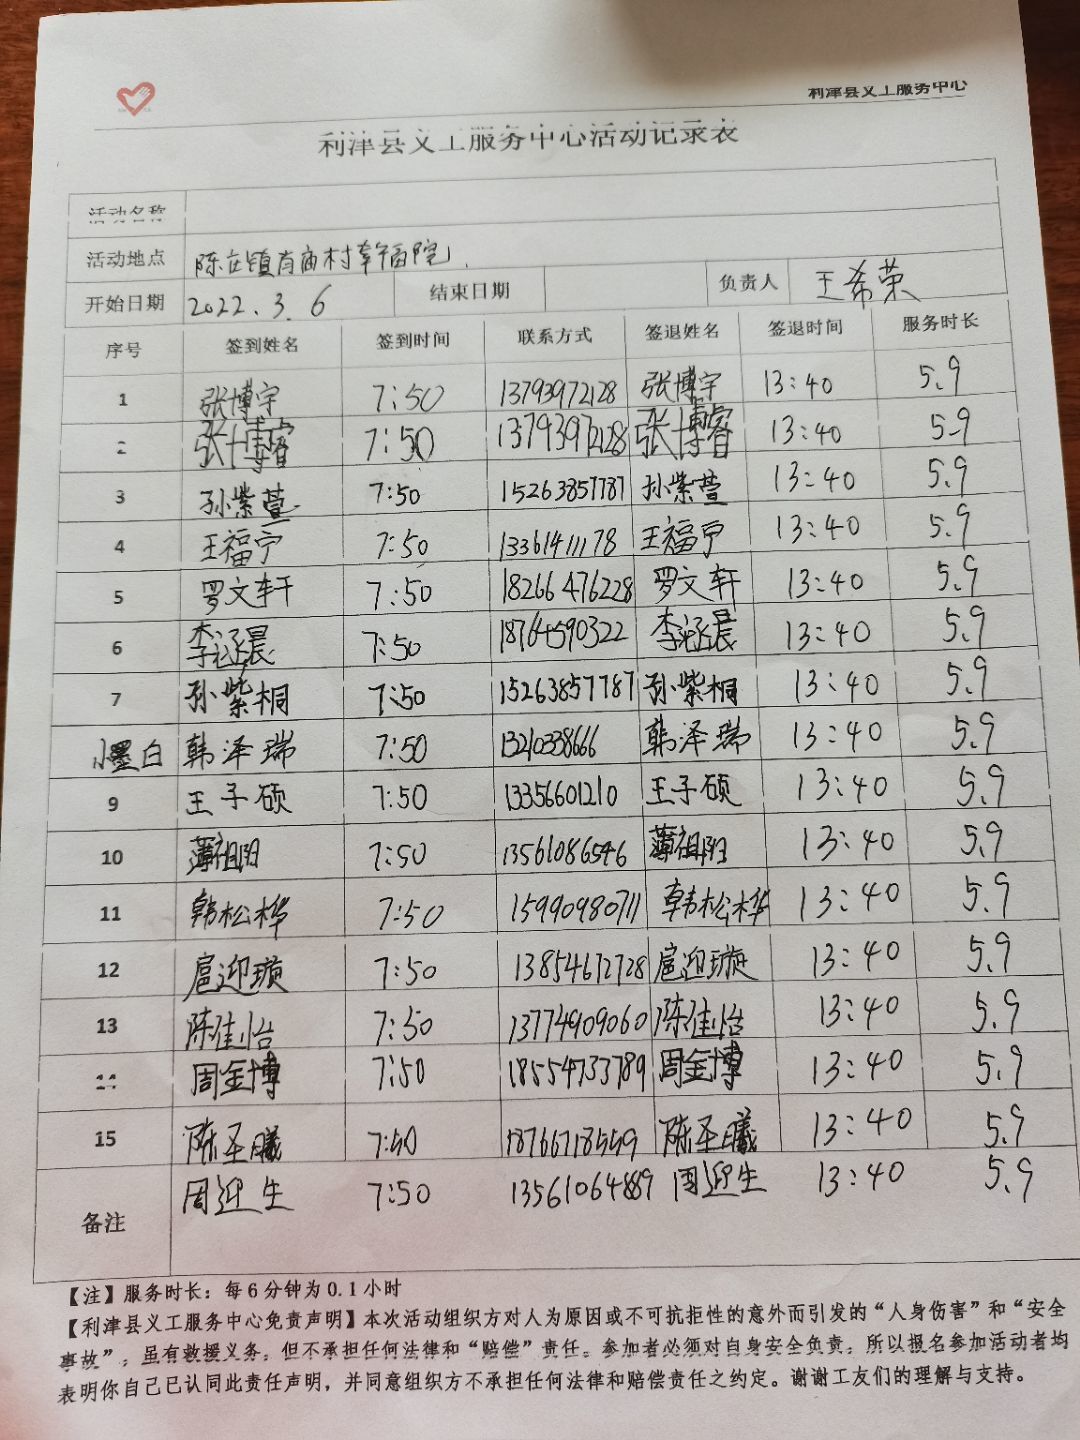 利津县义工服务中心
利津县义工服务中心活动记录表
活动名称
活动地点 陈庄镇肖庙村幸福院
开始日期 2022.3.6 结束日期 负责人 王希荣
序号 签到姓名 签到时间 联系方式 签退姓名 签退时间 服务时长
1 张博宇 7:50 13793972128 张博宇 13:40 5.9
2 张博睿 7:50 13793972128 张博睿 13:40 5.9
3 孙紫萱 7:50 15263857787 孙紫萱 13:40 5.9
4 王福宁 7:50 13361411178 王福宁 13:40 5.9
5 罗文轩 7:50 18266476228 罗文轩 13:40 5.9
6 李涵晨 7:50 18764590322 李涵晨 13:40 5.9
7 孙紫桐 7:50 15263857787 孙紫桐 13:40 5.9
小墨白 韩泽瑞 7:50 13210338666 韩泽瑞 13:40 5.9
9 王子硕 7:50 13356601210 王子硕 13:40 5.9
10 薄祖阳 7:50 13561086546 薄祖阳 13:40 5.9
11 韩松桦 7:50 15990980711 韩松桦 13:40 5.9
12 扈迎璇 7:50 13854672728 扈迎璇 13:40 5.9
13 陈佳怡 7:50 13774909060 陈佳怡 13:40 5.9
14 周金博 7:50 18554733789 周金博 13:40 5.9
15 陈圣曦 7:50 18766718559 陈圣曦 13:40 5.9
备注 周迎生 7:50 13561064889 周迎生 13:40 5.9
【注】服务时长：每6分钟为0.1小时
【利津县义工服务中心免责声明】本次活动组织方对人为原因或不可抗拒性的意外而引发的“人身伤害”和“安全
事故”，虽有救援义务，但不承担任何法律和“赔偿”责任。参加者必须对自身安全负责，所以报名参加活动者均
表明你自己已认同此责任声明，并同意组织方不承担任何法律和赔偿责任之约定。谢谢工友们的理解与支持。